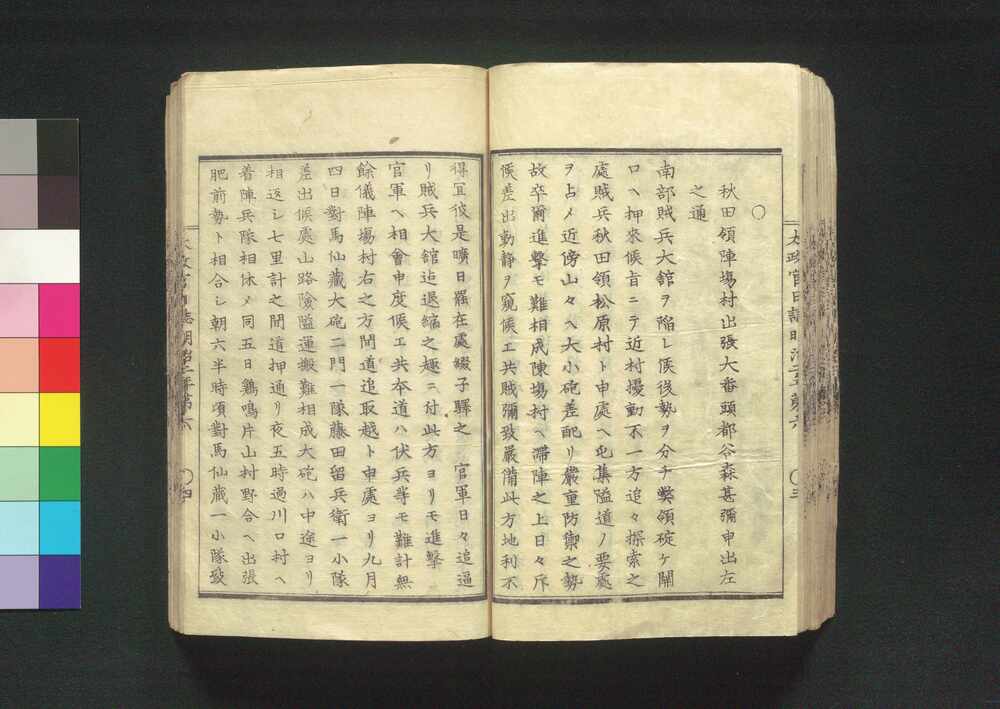 〇
秋田領陣塲村出張大番頭都谷森甚彌申出左
之通
南部賊兵大舘ヲ陥レ候後勢ヲ分チ弊領碇ケ關
口ヘ押來候旨ニテ近村擾動不一方追々探索之
處賊兵秋田領松原村ト申處ヘ屯集隘道ノ要處
ヲ占メ近傍山々ヘ大小砲差配リ嚴重防禦之勢
故卒爾進撃モ難相成陳塲村ヘ滯陣之上日々斥
候差出動静ヲ窺候エ共賊彌致嚴備此方地利不
得冝彼是曠日罷在處綴子驛之 官軍日々追逼
リ賊兵大舘迠退縮之趣ニ付此方ヨリモ進撃
官軍ヘ相會申度候エ共夲道ハ伏兵等モ難計無
餘儀陣塲村右之方間道追取越ト申處ヨリ九月
四日對馬仙藏大砲二門一隊藤田留兵衛一小隊
差出候處山路險隘運搬難相成大砲ハ中途ヨリ
相返シ七里計之間道押通リ夜五時過川口村ヘ
着陣兵隊相休メ同五日鶏鳴片山村野合ヘ出張
肥前勢ト相合シ朝六半時頃對馬仙藏一小隊發
太政官日誌明治二年第六
〇三
太政官日誌明治二年第六
〇四